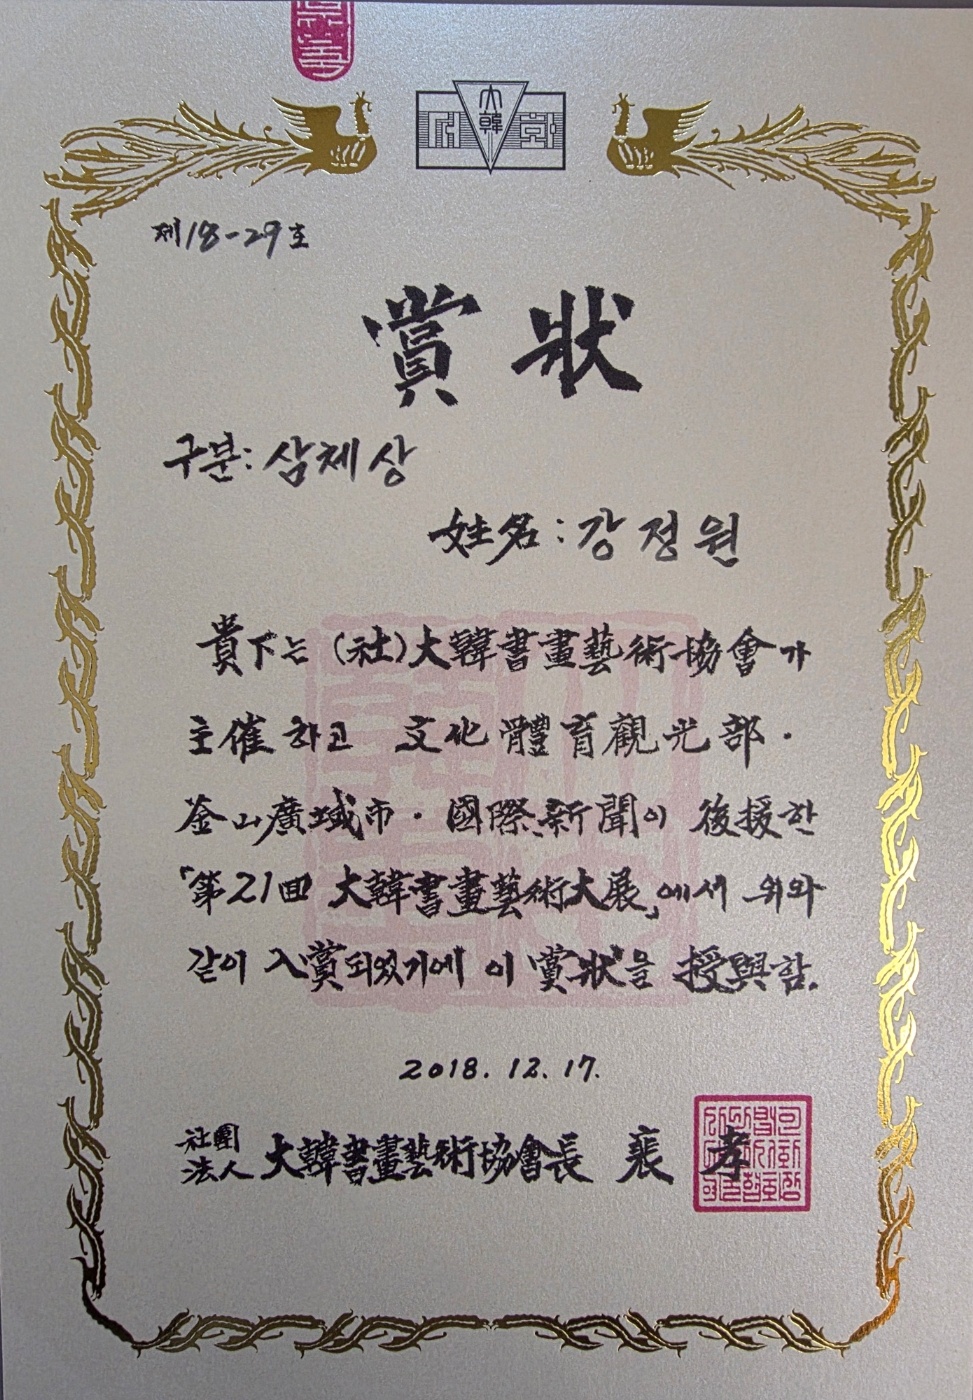 大韓
제18-29호
賞狀
구분: 삼체상
姓名: 강정원
貴下는 (社)大韓書畫藝術協會가
主催하고 文化體育觀光部·
釜山廣域市·國際新聞이 後援한
「第21回 大韓書畫藝術大展」에서 위와
같이 入賞되었기에 이 賞狀을 授與함.
2018. 12. 17.
社團法人 大韓書畫藝術協會長 裵 孝